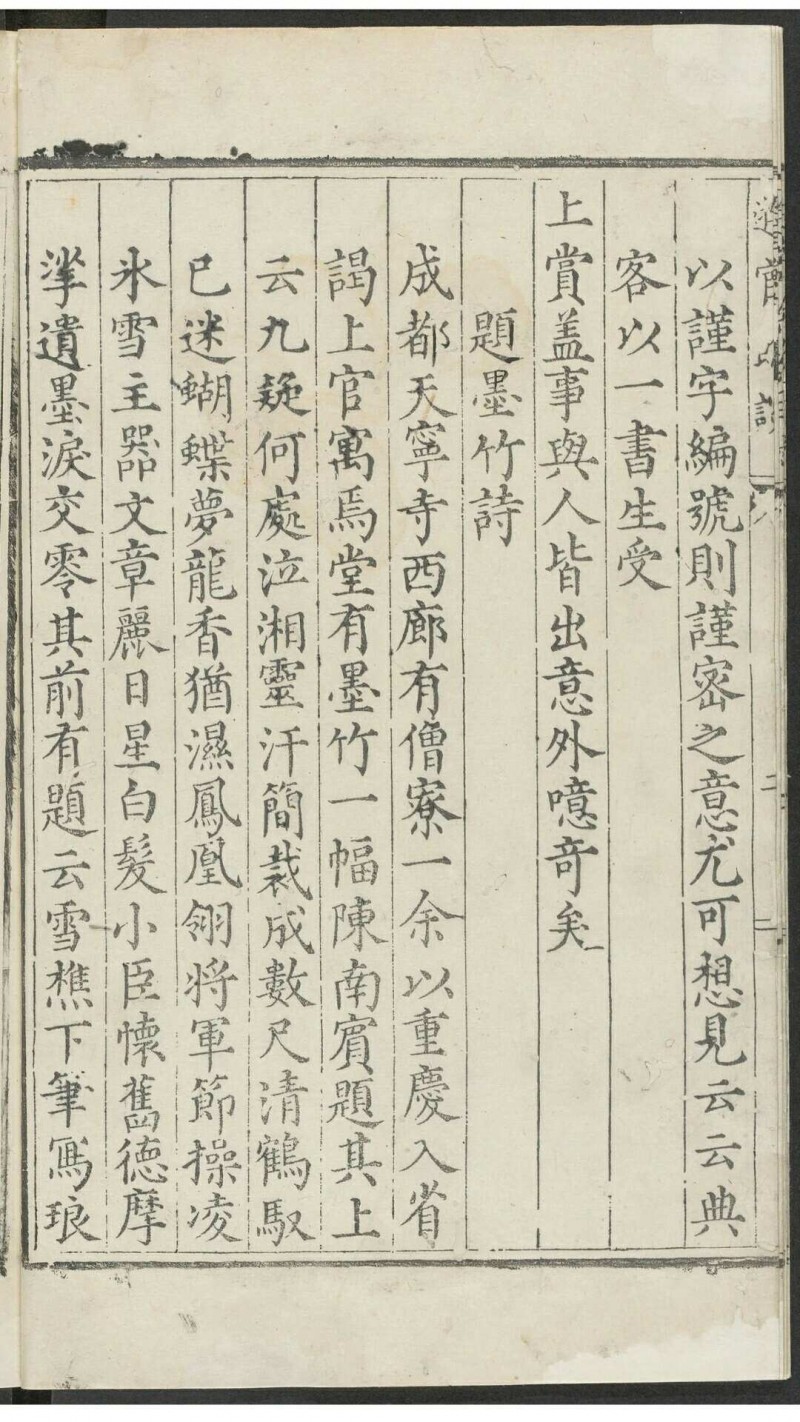 以謹字編號則謹宻之意尤可想見云云典
客以一書生受
上賞盖事與人皆出意外噫竒矣
題墨竹詩
成都天寧寺西廊有僧寮一余以重慶入省
謁上官寓焉堂有墨竹一幅陳南賔題其上
云九疑何處泣湘靈汗簡裁成數尺清鶴馭
已迷蝴蝶夢龍香猶濕鳳凰翎将軍節操凌
氷雪主器文章麗日星白髮小臣懷舊德摩
挲遺墨淚交零其前有題云雪樵下筆寫琅